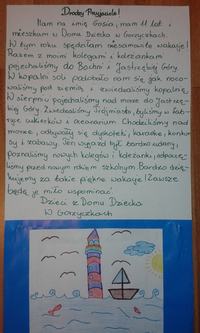 Drodzy Przyjaciele!
Mam na imię Gosia, mam 11 lat i
mieszkam w Domu Dziecka w Gorzyczkach.
W tym roku spędziłam niesamowite wakacje!
Razem z moimi kolegami i koleżankami
pojechaliśmy do Bochni i Jastrzębiej Góry.
W kopalni soli podobało nam się jak
pod ziemią i zwiedzaliśmy kopalnię.
W sierpniu pojechaliśmy nad morze do Jastrzę-
biej Góry. Zwiedzaliśmy Trójmiasto, byliśmy w fab-
ryce cukierków i oceanarium. Chodziliśmy nad
morze, odbywały się dyskoteki, karaoke, konkur-
sy i zabawy. Ten wyjazd był bardzo udany,
poznaliśmy nowych kolegów i koleżanki,
przed nowym rokiem szkolnym. Bardzo dzię-
kujemy za takie piękne wakacje! Zawsze
będę je miło wspominać.
Dzieci z Domu Dziecka
W Gorzyczkach